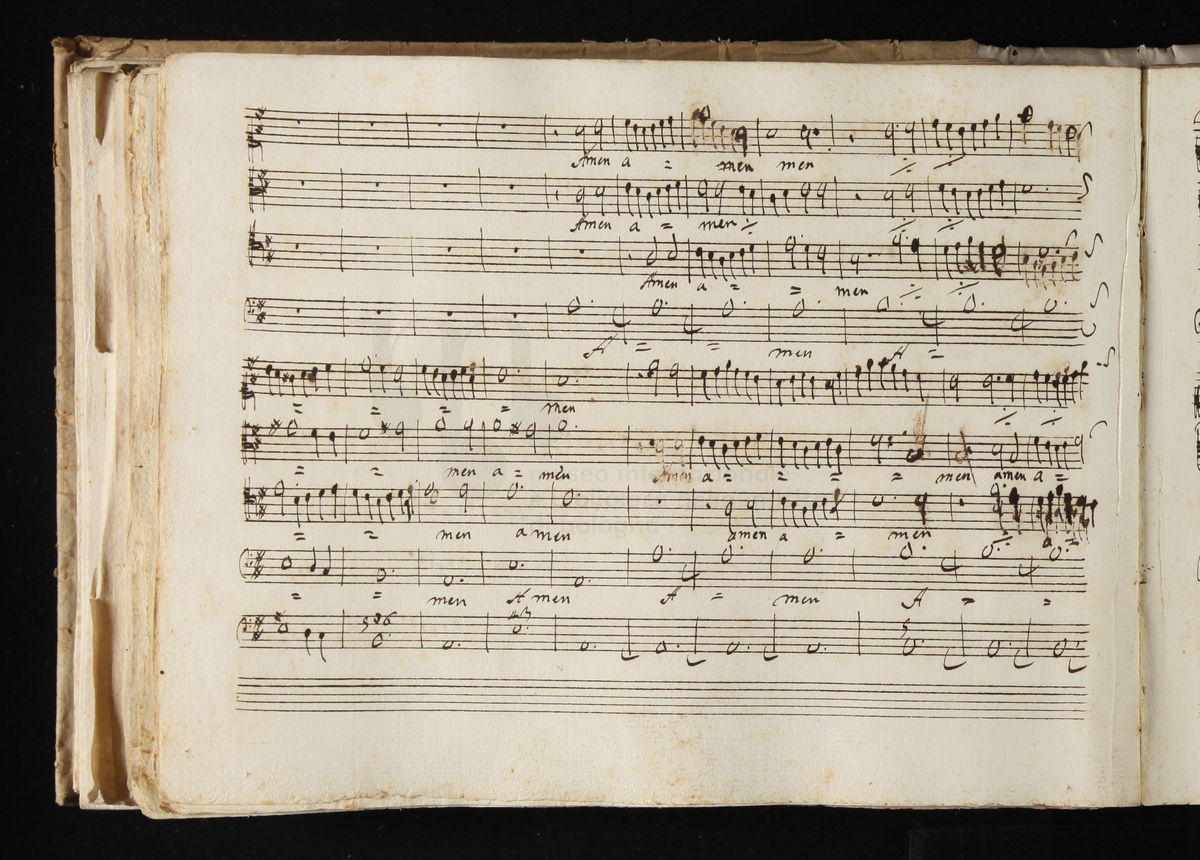 Amen a = men men
Amen a = men
Amen a = = men
A = = men A =
= = = = men
= = men a = men Amen a = = = = men amen a =
= = men amen amen a = men a =
= = men Amen A = men A = =
5 6
museo internazionale
bologna